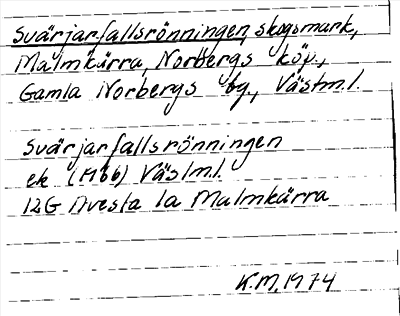 Svärjarfallsrönningen, skogsmark,
Malmkärra, Norbergs köp.,
Gamla Norbergs bg, Västm.l.
Svärjarfallsrönningen
ek (Höb) Västm.l.
12G Avesta 1a Malmkärra
K.M. 1974